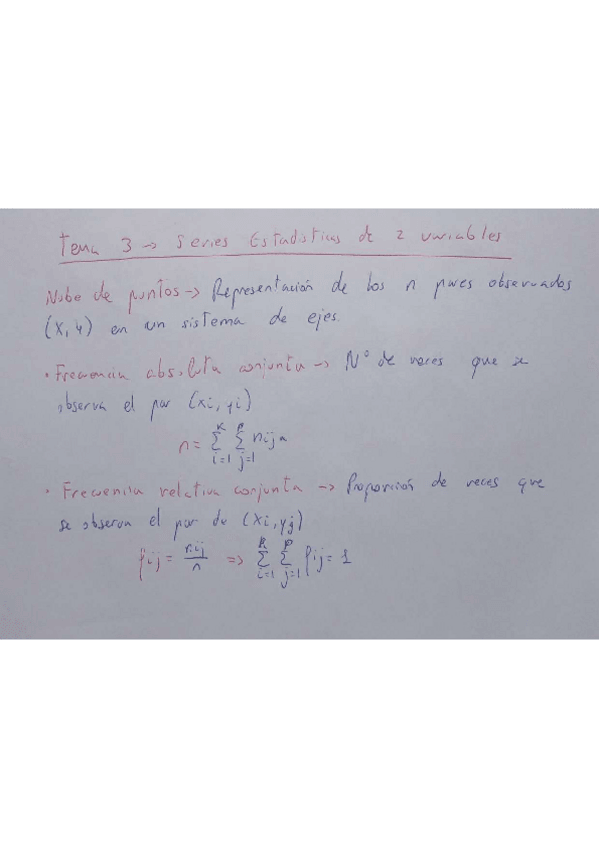 Tema 3 → Series Estadísticas de 2 variables
Nube de puntos → Representación de los n pares observados
(X, Y) en un sistema de ejes.
• Frecuencia absoluta conjunta → Nº de veces que se
observa el par (xi, yi)
n = Σ_{i=1}^{K} Σ_{j=1}^{P} nij
• Frecuencia relativa conjunta → Proporción de veces que
se observa el par de (xi, yj)
fij = nij/n => Σ_{i=1}^{K} Σ_{j=1}^{P} fij = 1